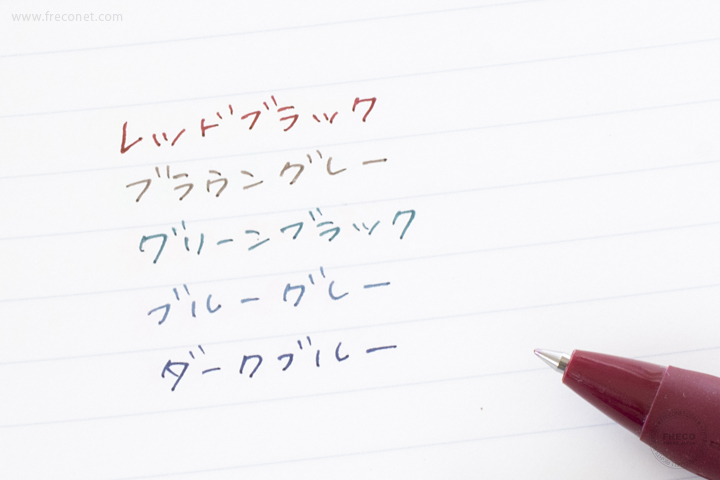 www.freconet.com
レッドブラック
ブラウングレー
グリーンブラック
ブルーグレー
ダークブルー